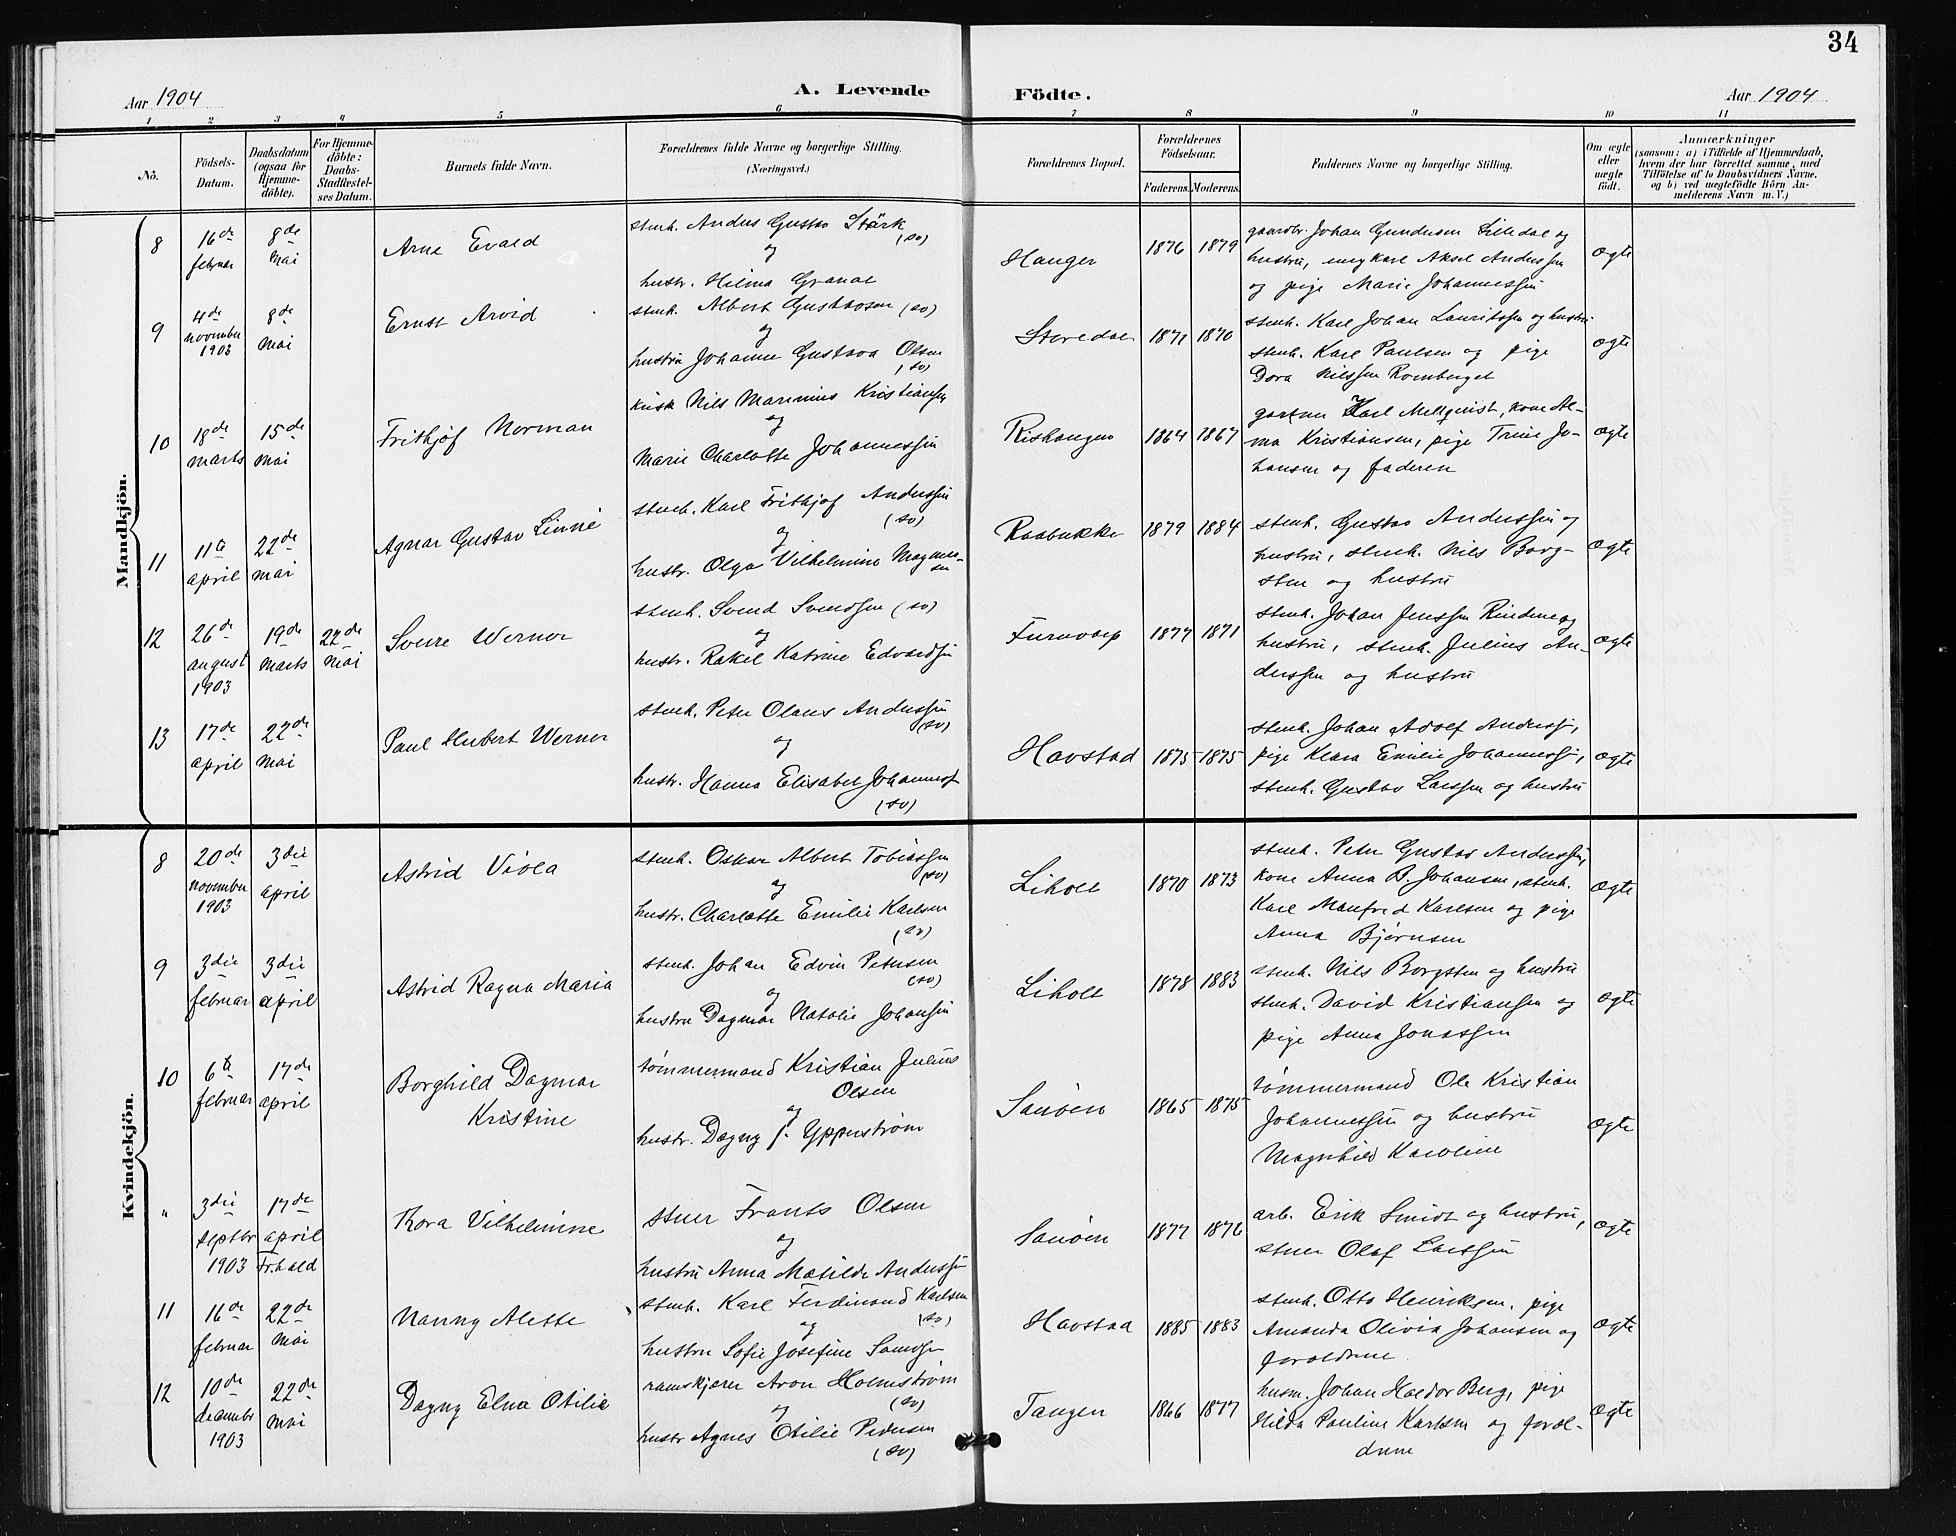 34
Aar 1904
A. Levende Födte.
Aar 1904
1 2 3 4 5 6 7 8 9 10 11
No.
Födsels-Datum.
Daabsdatum (ogsaa for Hjemme-döbte).
For Hjemme-döbte: Daabs-Stadfæstel-ses Datum.
Barnets fulde Navn.
Forældrenes fulde Navne og borgerlige Stilling.
(Næringsvei.)
Forældrenes Bopæl.
Forældrenes Födselsaar.
Faderens. Moderens.
Faddernes Navne og borgerlige Stilling.
Om ægte eller uægte født.
Anmærkninger
(saasom: a) i Tilfælde af Hjemmedaab,
hvem der har forrettet samme, med
Tilföielse af to Daabsvidners Navne,
og b) ved uægtefödte Börn An-
melderens Navn m.V.)
Mandkjön.
8 16de februar 8de mai
Arne Evald
stenh. Anders Gustav Stärk (sv)
og
hustr. Hilma Granat
Hauger 1876 1879
gaardbr. Johan Gundersen Lilledal og
hustru, ungkarl Aksel Anderssen
og pige Marie Johannessen
ægte
9 4de november 1903 8de mai
Ernst Arvid
stenh. Albert Gustavsen (sv)
og
hustru Johanne Gustava Olsen (sv)
Storedal 1871 1870
stenh. Karl Johan Lauritssen og hustru
stenh. Karl Paulsen og pige
Dora Nilssen Romberget
ægte
10 18de marts 15de mai
Frithjof Norman
kusk Nils Marinius Kristiansen
og
Marie Charlotte Johannessen
Rishaugen 1864 1867
gartner Karl Mellquist, kone Al-
ma Kristiansen, pige Trine Jo-
hansen og faderen
ægte
11 11te april 22de mai
Agnar Gustav Linné
stenh. Karl Frithjof Anderssen (sv)
og
hustr. Olga Vilhelmine Magnus-
sen
Raabukke 1879 1884
stenh. Gustav Anderssen og
hustru, stenh. Nils Borg-
sten og hustru
ægte
12 26de august 1903 19de marts 22de mai
Sverre Werner
stenh. Svend Svendsen (sv)
og
hustr. Rakel Katrine Edvardsen
Furuvarp 1877 1871
stenh. Johan Jenssen Rindene og
hustru, stenh. Julius An-
derssen og hustru
ægte
13 17de april 22de mai
Paul Hubert Werner
stenh. Peter Olaus Anderssen (sv)
og
hustr. Hanna Elisabet Johanness. (sv)
Havstad 1875 1875
stenh. Johan Adolf Anderss.,
pige Klara Emilie Johanness.,
stenh. Gustav Larssen og hustru
ægte
Kvindekjön.
8 20de november 1903 3die april
Astrid Viola
stenh. Oskar Albert Tobiassen (sv)
og
hustr. Charlotte Emilie Karlsen (sv)
Liholt 1870 1873
stenh. Peter Gustav Anderssen,
kone Anna B. Johansen, stenh.
Karl Manfred Karlsen og pige
Anna Bjørnsen
ægte
9 3die februar 3die april
Astrid Ragna Maria
stenh. Johan Edvin Petersen (sv)
og
hustru Dagmar Natalie Johansen
Liholt 1878 1883
stenh. Nils Borgsten og hustru
stenh. David Kristiansen og
pige Anna Jonassen
ægte
10 6te februar 17de april
Borghild Dagmar
Kristine
tømmermand Kristian Julius
Olsen
og
hustr. Dagny J. Ypperstrøm
Sanøen 1865 1875
tømmermand Ole Kristian
Johannessen og hustru
Magnhild Karoline
ægte
" 3die septbr 1903 17de april Fr.hald
Thora Vilhelmine
stuer Frants Olsen
og
hustru Anna Matilde Anderssen
Sanøen 1877 1876
arb. Erik Smidt og hustru,
stuer Olaf Larssen
ægte
11 16de februar 22de mai
Nanny Alette
stenh. Karl Ferdinand Karlsen (sv)
og
hustru Sofie Josefine
Havstad 1885 1883
stenh. Otto Henriksen, pige
Amanda Olivia Johansen og
forældrene
ægte
12 10de decembr 1903 22de mai
Dagny Elna Otilie
ramskjører Aron Holmstrøm (sv)
og
hustr Agnes Otilie Pedersen (sv)
Tangen 1866 1877
husm. Johan Haldor Berg, pige
Hilda Pauline Karlsen og foræl-
drene
ægte